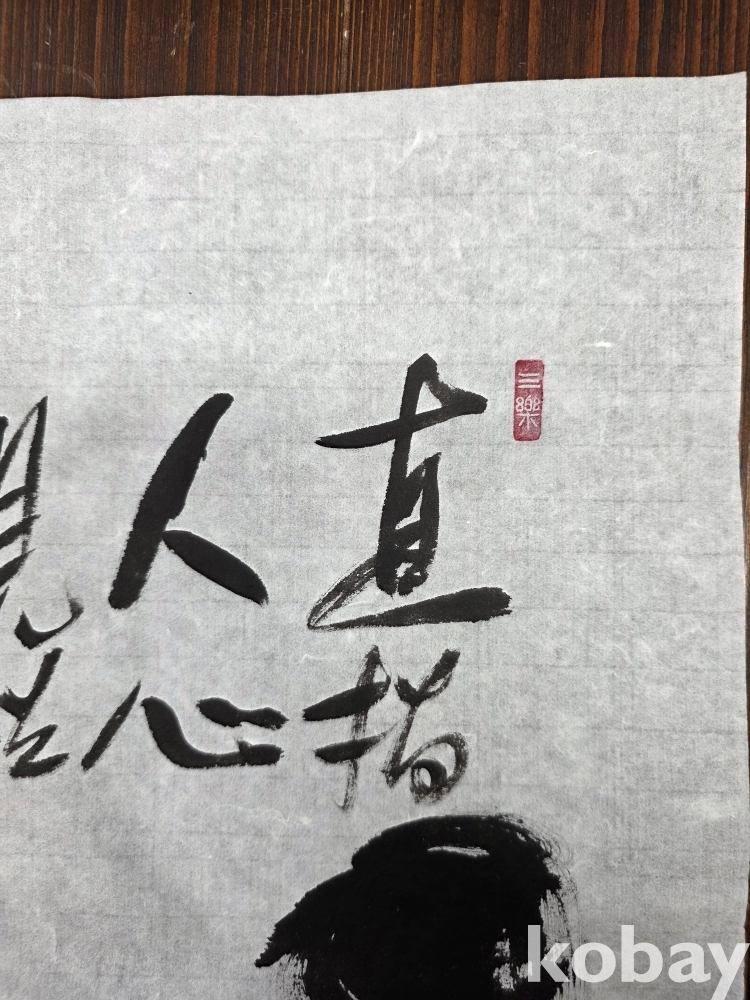 三樂
直指
人心
見性
kobay